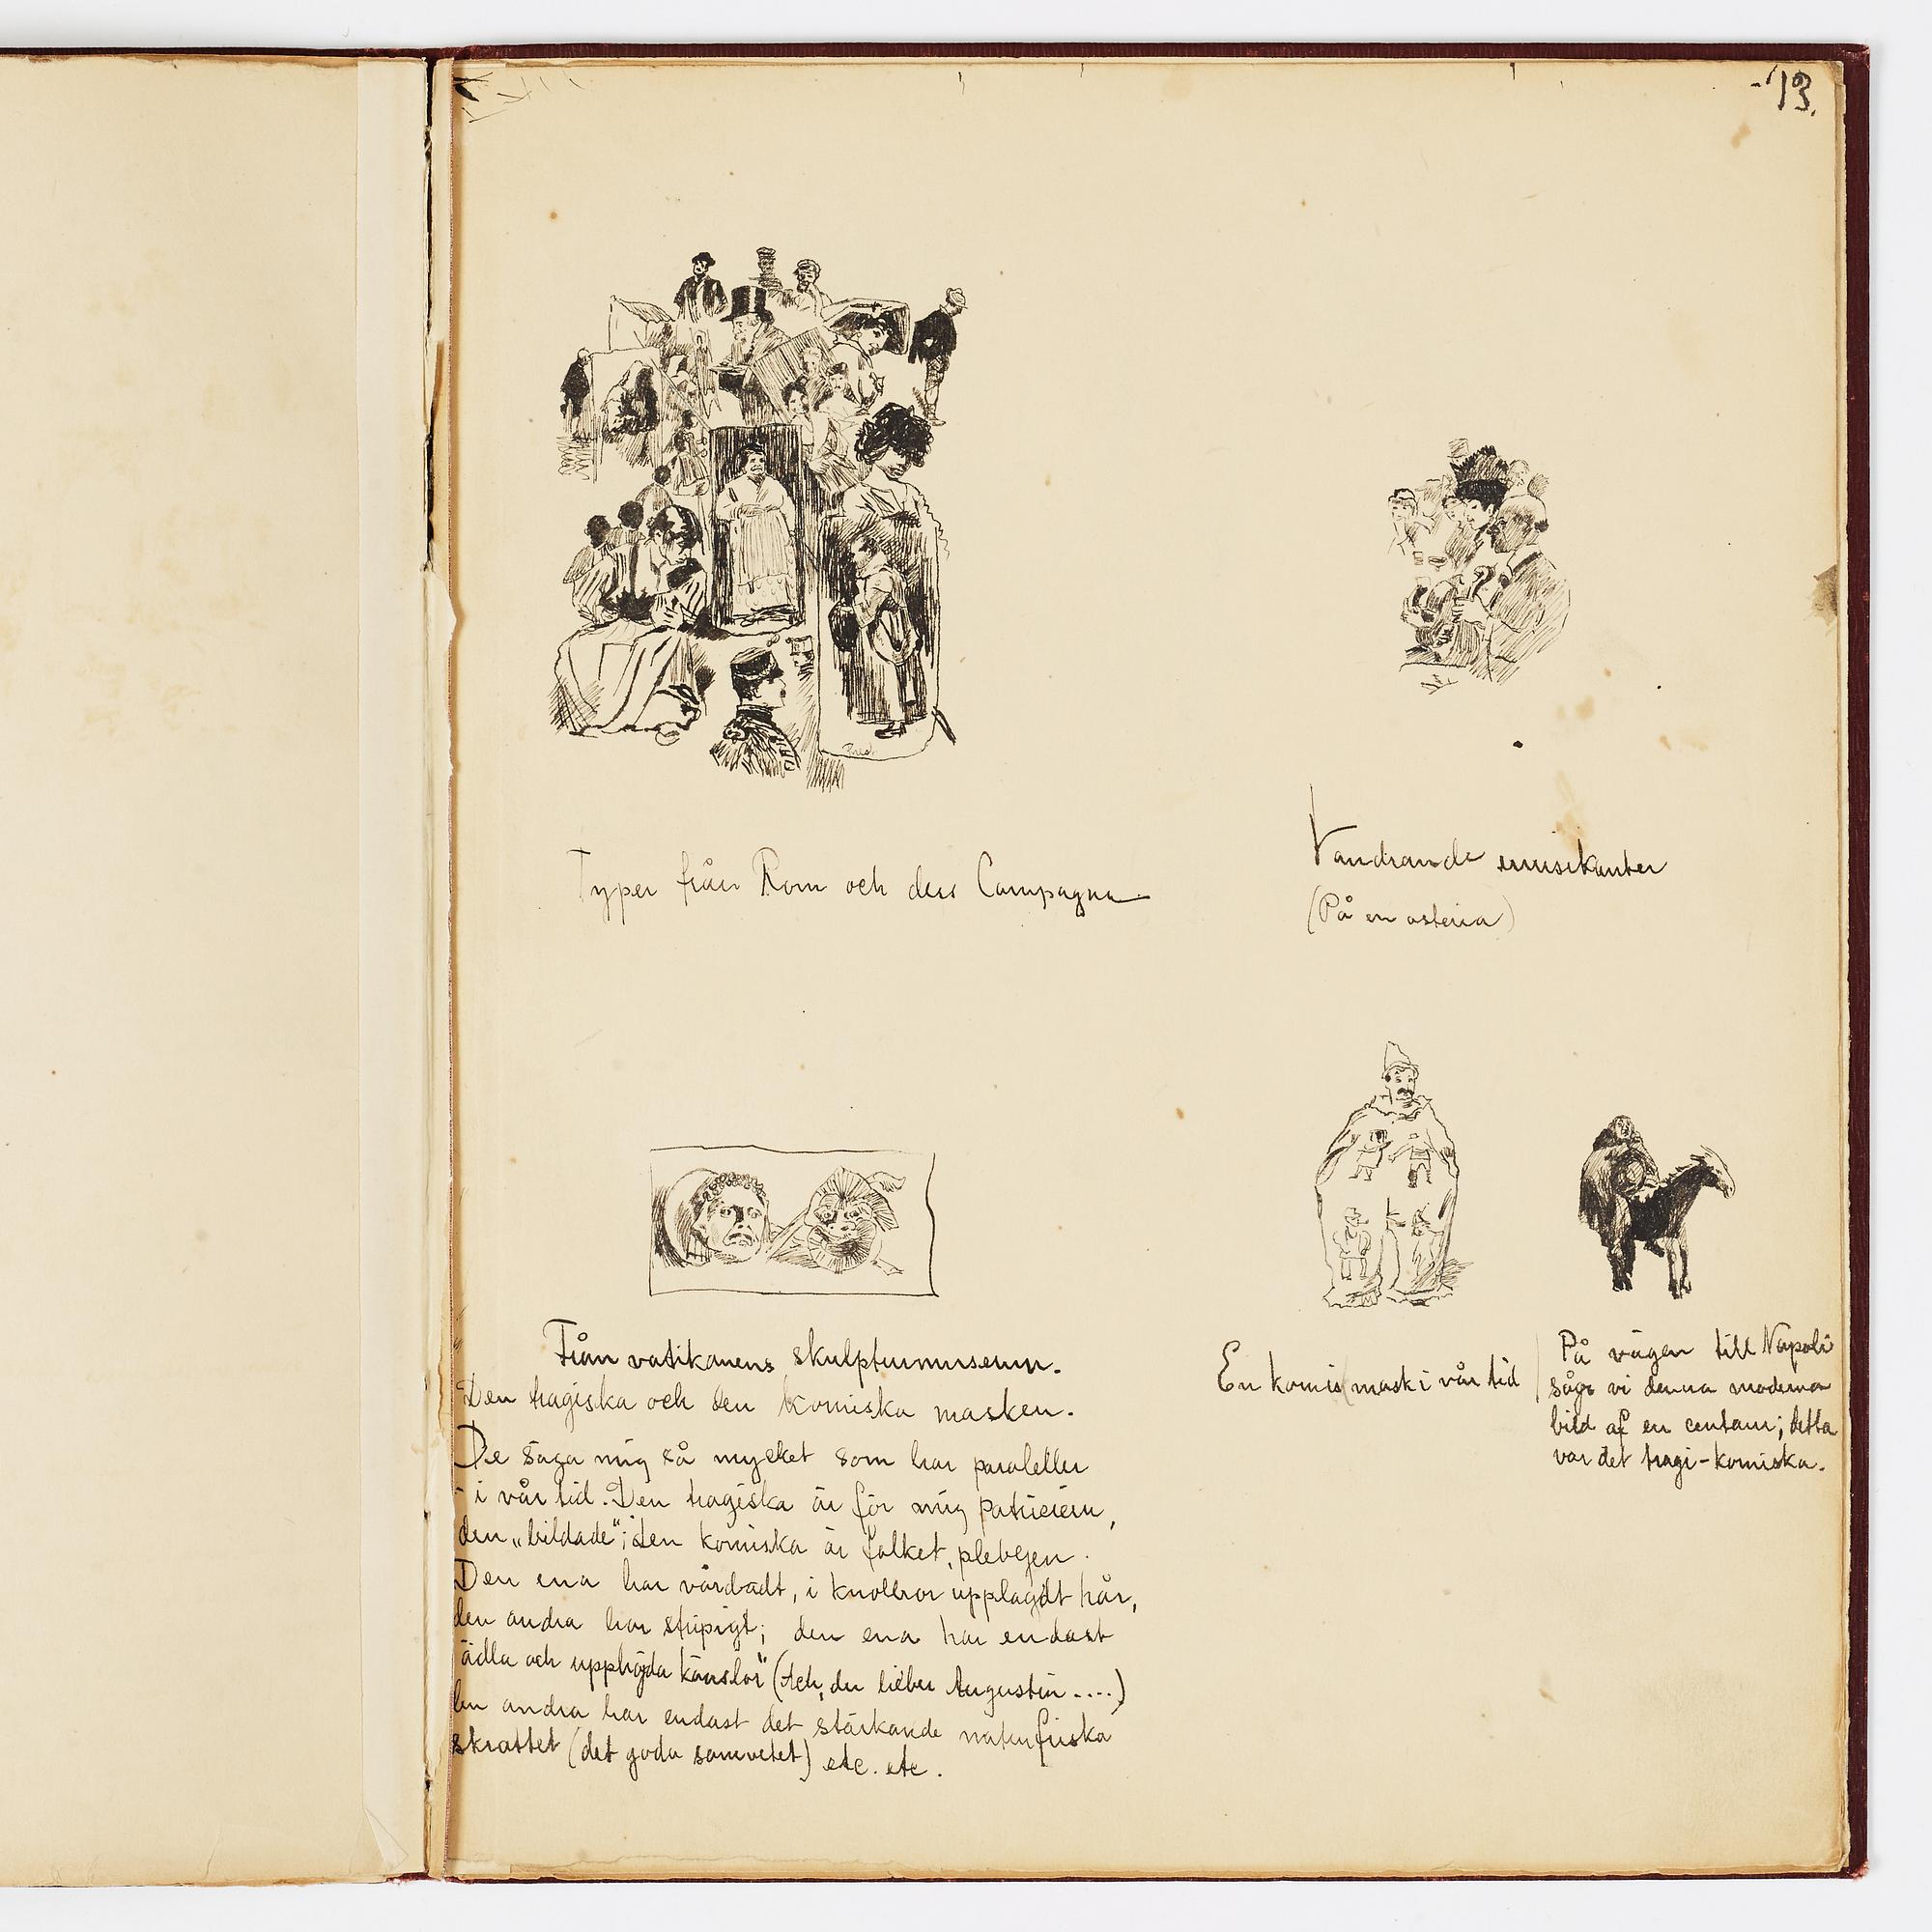 -13.
Typer från Rom och dess Campagna
Vandrande musikanter
(På en osteria)
Från vatikanens skulpturmuseum.
Den tragiska och den komiska masken.
De säga mig så mycket som har paraleller
i vår tid. Den tragiska är för mig patriciern,
den „bildade“; den komiska är folket, plebejen.
Den ena har vårdadt, i knollror upplagdt hår,
den andra har stripigt; den ena har endast
ädla och upphöjda känslor“ (Ach, du lieber Augustin ....)
den andra har endast det stärkande naturfriska
skrattet (det goda samvetet) etc. etc.
En komisk mask i vår tid
På vägen till Napoli
sågo vi denna moderna
bild af en centaur; detta
var det tragi-komiska.